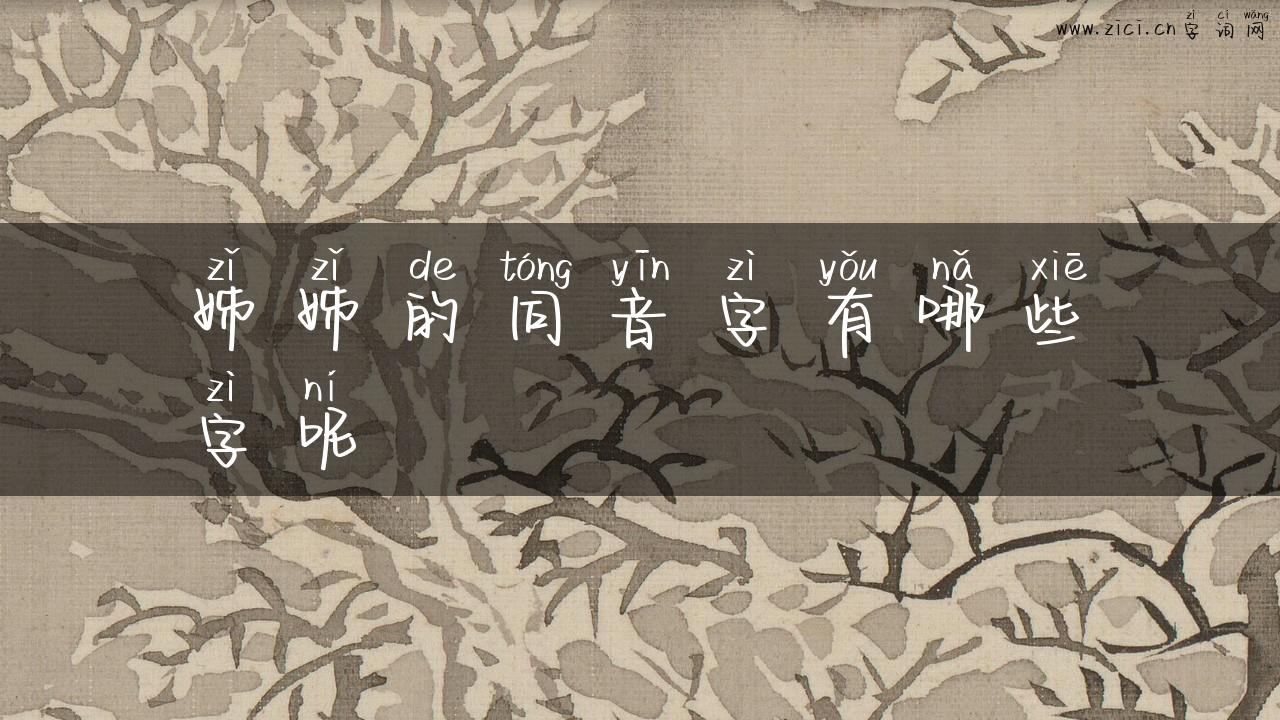 www.zici.cn zì cí wǎng
字词网
zǐ zǐ de tóng yīn zì yǒu nǎ xiē
姊姊的同音字有哪些
zì ní
字呢